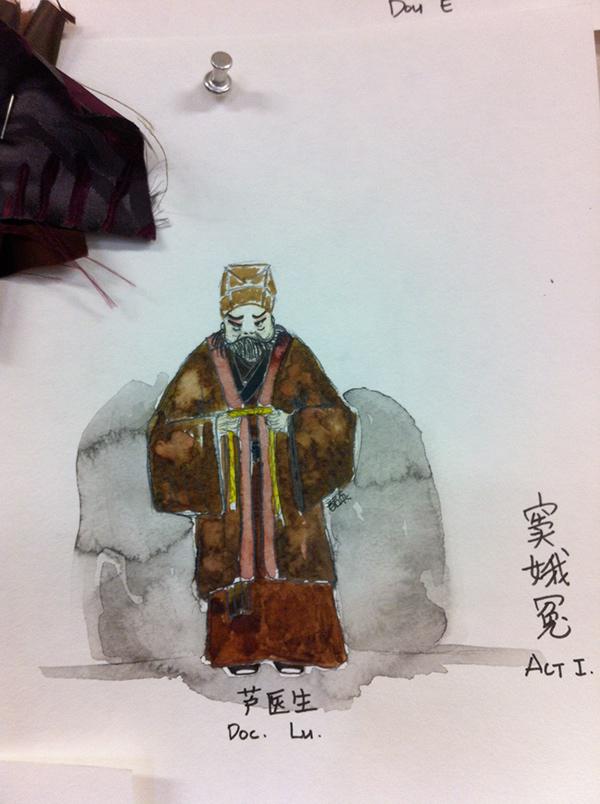 Dou E
窦娥冤
ACT I.
芦医生
Doc. Lu.